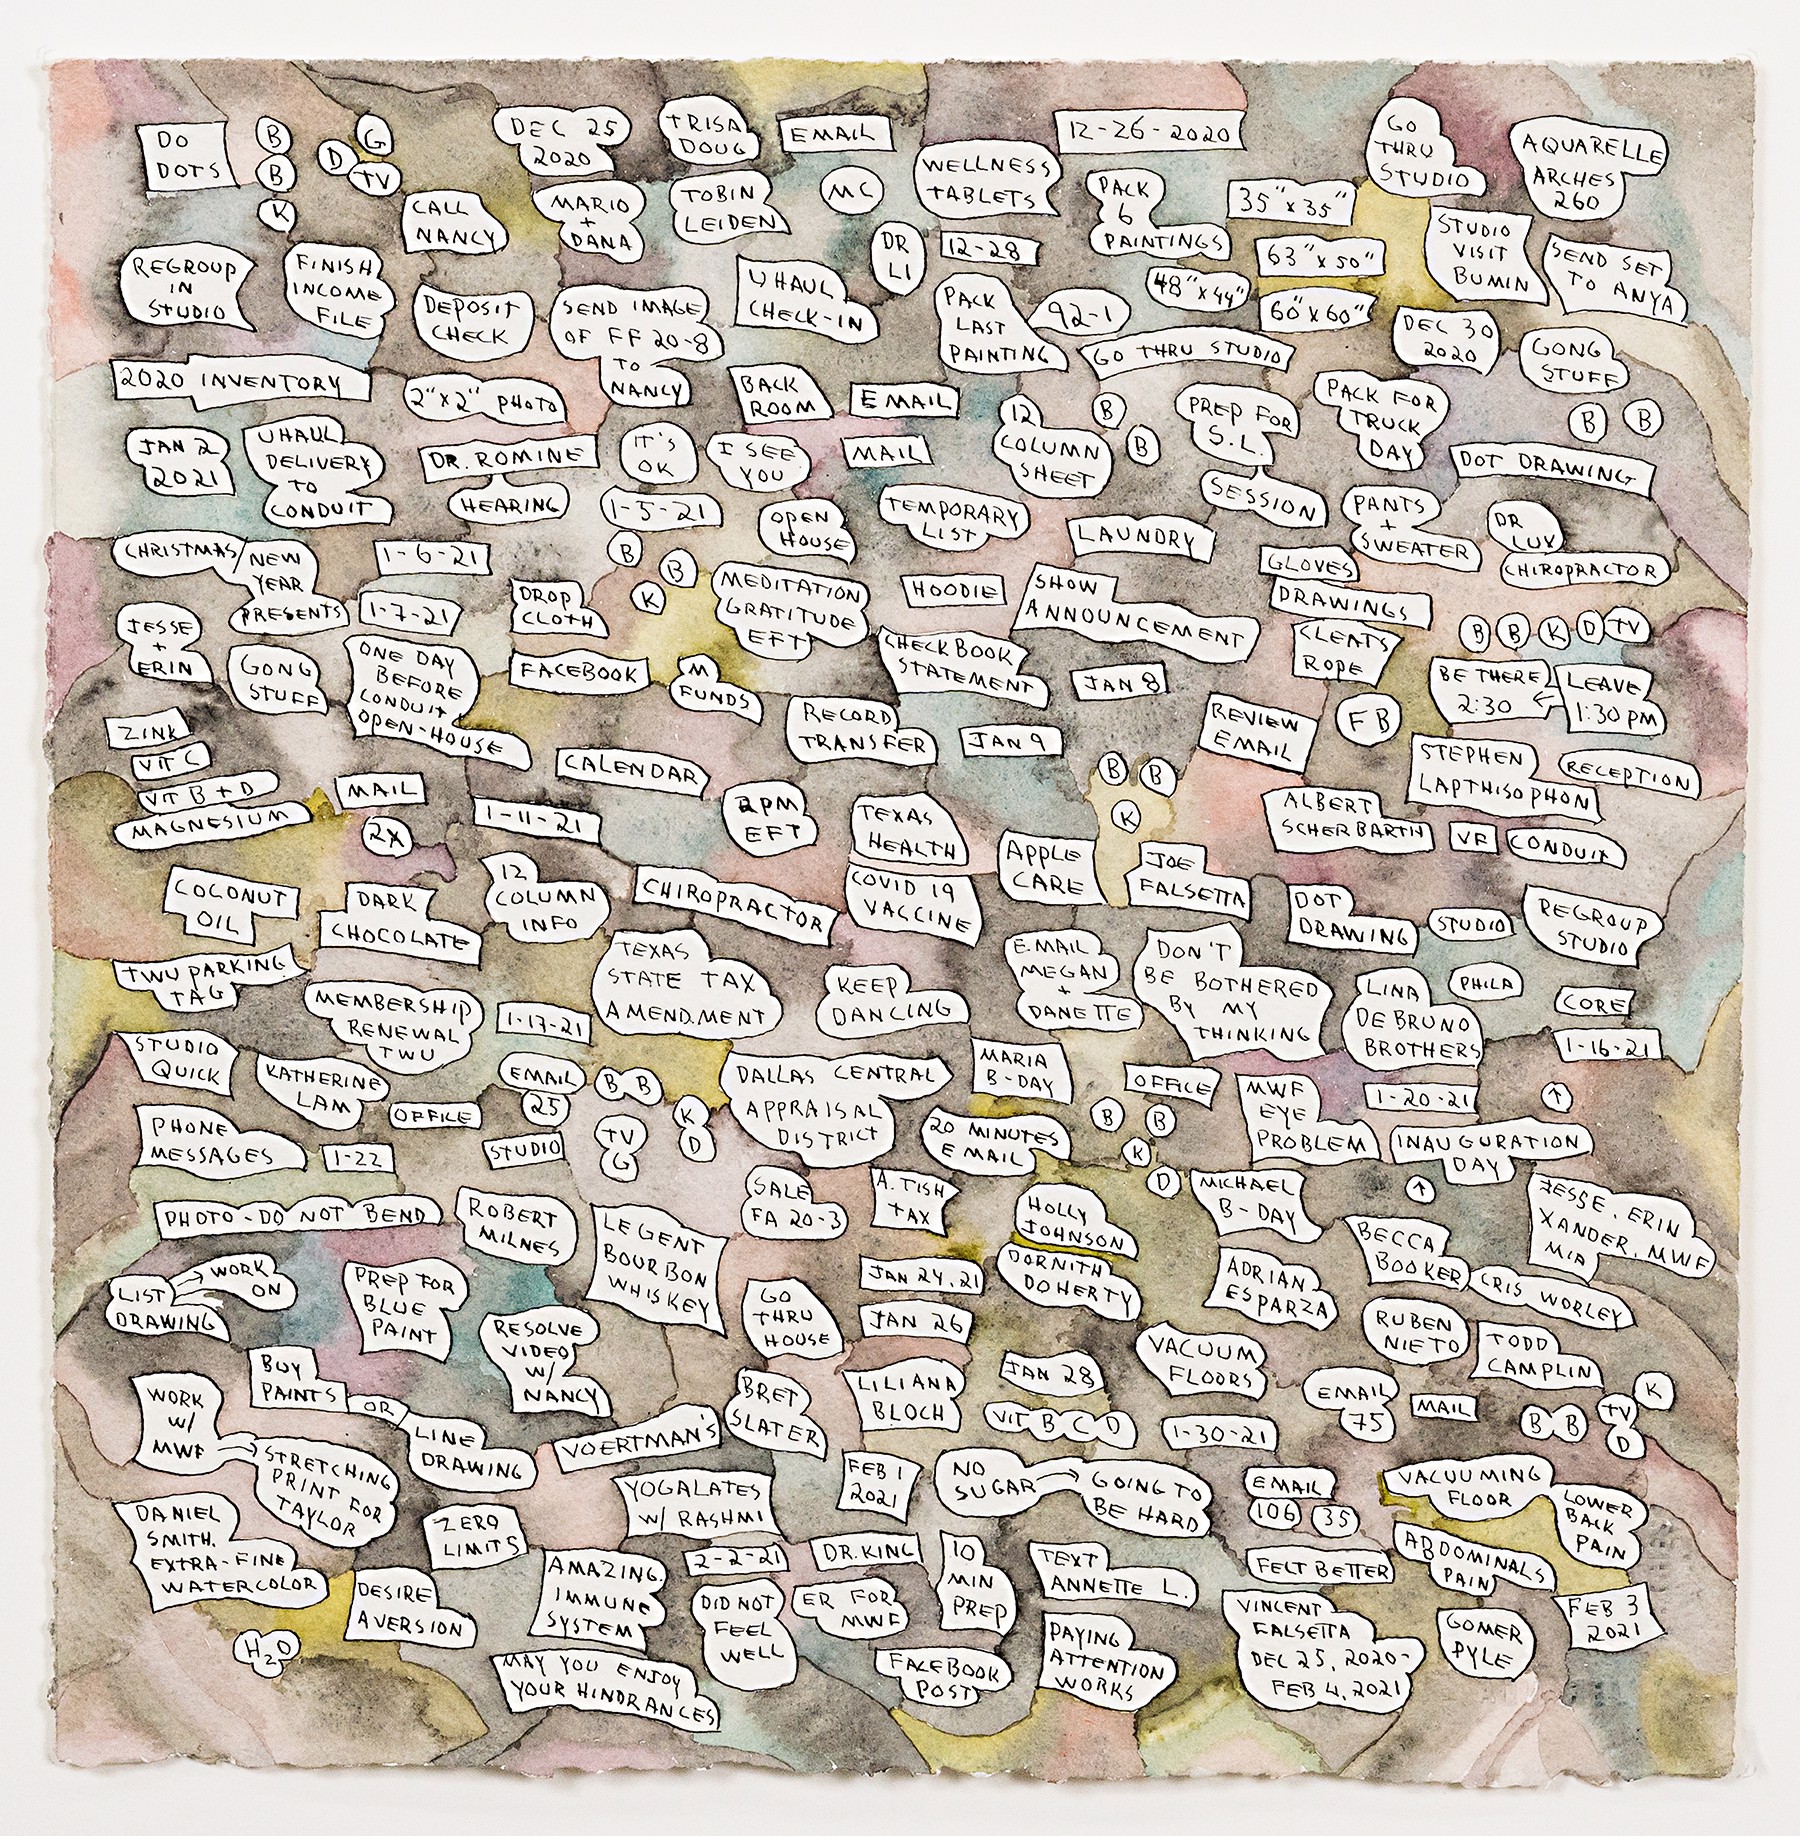 DO
DOTS
B
B
K
G
D
TV
DEC 25
2020
TRISA
DOUG
EMAIL
12-26-2020
GO
THRU
STUDIO
AQUARELLE
ARCHES
260
CALL
NANCY
MARIO
+
DANA
TOBIN
LEIDEN
MC
WELLNESS
TABLETS
PACK
6
PAINTINGS
35" x 35"
STUDIO
VISIT
BUMIN
SEND SET
TO ANYA
REGROUP
IN
STUDIO
FINISH
INCOME
FILE
DEPOSIT
CHECK
SEND IMAGE
OF FF 20-8
TO
NANCY
UHAUL
CHECK-IN
DR
LI
12-28
PACK
LAST
PAINTING
92-1
48" x 44"
63" x 50"
60" x 60"
GO THRU STUDIO
DEC 30
2020
GONG
STUFF
2020 INVENTORY
2" x 2" PHOTO
BACK
ROOM
EMAIL
12
COLUMN
SHEET
B
B
PREP FOR
S.L.
SESSION
PACK FOR
TRUCK
DAY
B
B
JAN 2
2021
UHAUL
DELIVERY
TO
CONDUIT
DR. ROMINE
HEARING
IT'S
OK
I SEE
YOU
MAIL
DOT DRAWING
1-5-21
OPEN
HOUSE
TEMPORARY
LIST
LAUNDRY
PANTS
+
SWEATER
DR
LUX
CHIROPRACTOR
CHRISTMAS/NEW
YEAR
PRESENTS
1-6-21
1-7-21
DROP
CLOTH
B
B
K
MEDITATION
GRATITUDE
EFT
HOODIE
SHOW
ANNOUNCEMENT
GLOVES
DRAWINGS
CLEATS
ROPE
B
B
K
D
TV
JESSE
+
ERIN
GONG
STUFF
ONE DAY
BEFORE
CONDUIT
OPEN-HOUSE
FACEBOOK
M
FUNDS
CHECKBOOK
STATEMENT
JAN 8
BE THERE
2:30
LEAVE
1:30 PM
ZINK
VIT C
VIT B + D
MAGNESIUM
RECORD
TRANSFER
JAN 9
REVIEW
EMAIL
FB
STEPHEN
LAPTHISOPHON
RECEPTION
MAIL
2X
CALENDAR
1-11-21
2PM
EFT
TEXAS
HEALTH
COVID 19
VACCINE
B
B
K
ALBERT
SCHERBARTH
VF
CONDUIT
COCONUT
OIL
DARK
CHOCOLATE
12
COLUMN
INFO
CHIROPRACTOR
APPLE
CARE
JOE
FALSETTA
DOT
DRAWING
STUDIO
REGROUP
STUDIO
TWU PARKING
TAG
MEMBERSHIP
RENEWAL
TWU
1-17-21
TEXAS
STATE TAX
AMENDMENT
KEEP
DANCING
E.MAIL
MEGAN
+
DANETTE
DON'T
BE BOTHERED
BY MY
THINKING
LINA
DE BRUNO
BROTHERS
PHILA
CORE
1-16-21
↑
STUDIO
QUICK
KATHERINE
LAM
OFFICE
EMAIL
25
B
B
K
D
TV
G
DALLAS CENTRAL
APPRAISAL
DISTRICT
MARIA
B-DAY
OFFICE
MWF
EYE
PROBLEM
1-20-21
INAUGURATION
DAY
↑
PHONE
MESSAGES
1-22
STUDIO
20 MINUTES
EMAIL
B
B
K
D
MICHAEL
B-DAY
JESSE, ERIN
XANDER, MWF
MIA
PHOTO-DO NOT BEND
ROBERT
MILNES
LEGENT
BOURBON
WHISKEY
SALE
FA 20-3
A. TISH
TAX
HOLLY
JOHNSON
DORNITH
DOHERTY
BECCA
BOOKER
CRIS WORLEY
LIST → WORK
ON
DRAWING
PREP FOR
BLUE
PAINT
RESOLVE
VIDEO
W/
NANCY
GO
THRU
HOUSE
JAN 24, 21
JAN 26
ADRIAN
ESPARZA
RUBEN
NIETO
TODD
CAMPLIN
WORK
W/
MWF →
BUY
PAINTS
OR
LINE
DRAWING
STRETCHING
PRINT FOR
TAYLOR
VOERTMAN'S
BRET
SLATER
LILIANA
BLOCH
JAN 28
VIT B C D
VACUUM
FLOORS
1-30-21
EMAIL
75
MAIL
B
B
TV
K
D
DANIEL
SMITH.
EXTRA-FINE
WATERCOLOR
ZERO
LIMITS
YOGALATES
W/ RASHMI
FEB 1
2021
NO
SUGAR → GOING TO
BE HARD
EMAIL
106
35
VACUUMING
FLOOR
LOWER
BACK
PAIN
DESIRE
AVERSION
AMAZING
IMMUNE
SYSTEM
2-2-21
DR. KING
10
MIN
PREP
TEXT
ANNETTE L.
FELT BETTER
ABDOMINALS
PAIN
H2O
MAY YOU ENJOY
YOUR HINDRANCES
DID NOT
FEEL
WELL
ER FOR
MWF
FACEBOOK
POST
PAYING
ATTENTION
WORKS
VINCENT
FALSETTA
DEC 25, 2020-
FEB 4, 2021
GOMER
PYLE
FEB 3
2021